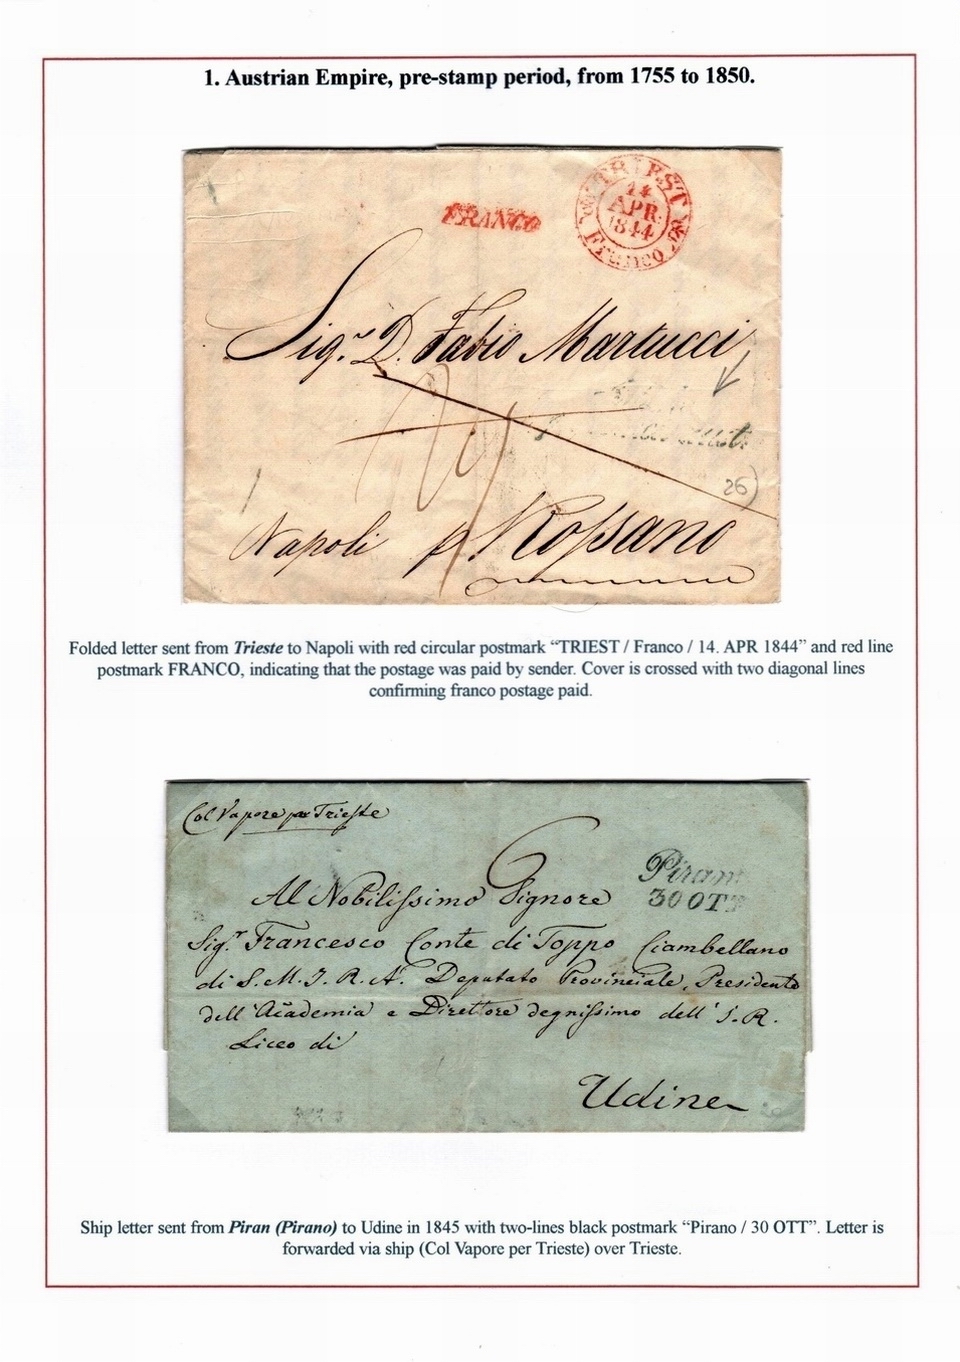 1. Austrian Empire, pre-stamp period, from 1755 to 1850.
FRANCO
TRIEST
14
APR.
1844
Franco
Sig.r D. Fabio Martucci
26)
Napoli p Rossano
Folded letter sent from Trieste to Napoli with red circular postmark “TRIEST / Franco / 14. APR 1844” and red line
postmark FRANCO, indicating that the postage was paid by sender. Cover is crossed with two diagonal lines
confirming franco postage paid.
Col Vapore per Trieste
Piran
30 OTT
Al Nobilissimo Signore
Sig.r Francesco Conte di Toppo Ciambellano
di S. M. I. R. A. Deputato Provinciale, Presidente
dell'Academia e Direttore degnissimo dell' I. R.
Liceo di
Udine
Ship letter sent from Piran (Pirano) to Udine in 1845 with two-lines black postmark “Pirano / 30 OTT”. Letter is
forwarded via ship (Col Vapore per Trieste) over Trieste.